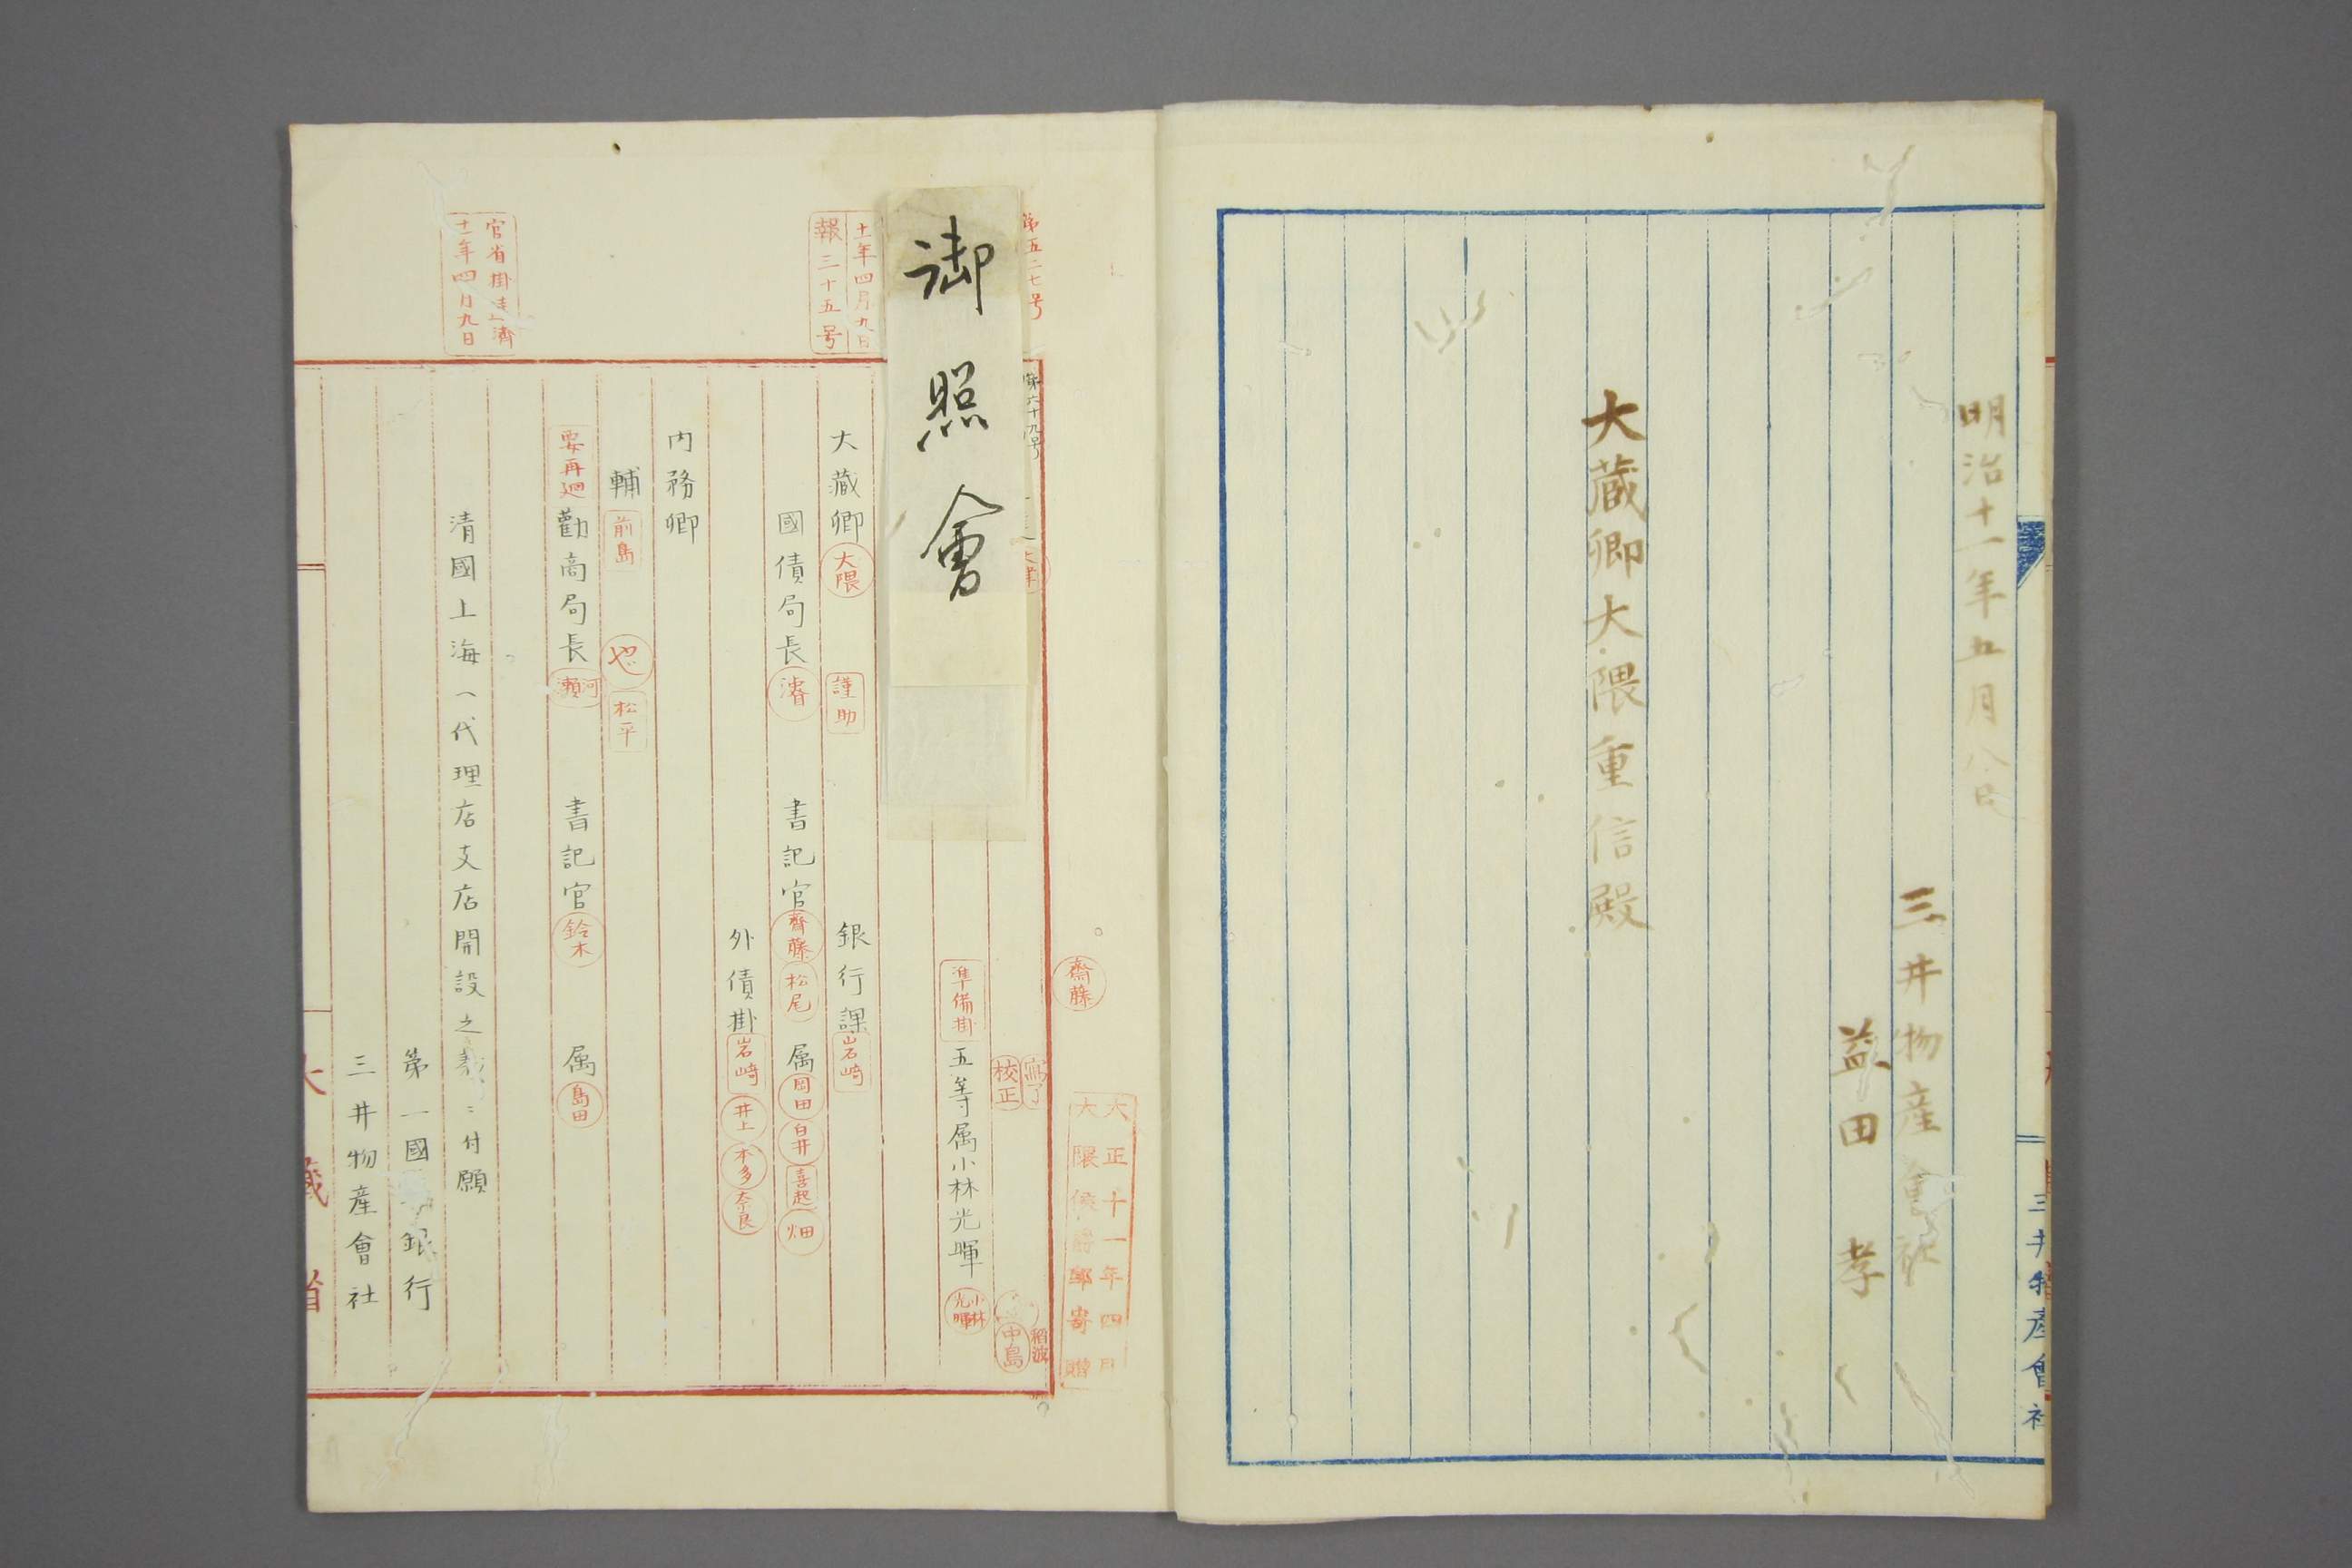 明治十一年五月八日
三井物産會社
益田 孝
大蔵卿大隈重信殿
三井物産會社
第五二七号
第六十九号
御照會
大正十一年四月
大隈侯爵邸寄贈
齋藤
寫了
校正
稻波
中島
準備掛 五等属小林光暉 小林光暉
十一年四月九日
報三十五号
大藏卿 大隈 謹助 銀行課 岩崎
國債局長 濬 書記官 齊藤 松尾 属 岡田 白井 喜起 畑
外債掛 岩崎 井上 本多 奈良
内務卿
輔 前島 松平
要再廻 勸商局長 河瀬 書記官 鈴木 属 島田
官省掛 濟
十一年四月九日
清國上海へ代理店支店開設之義ニ付願
第一國立銀行
三井物産會社
大藏省